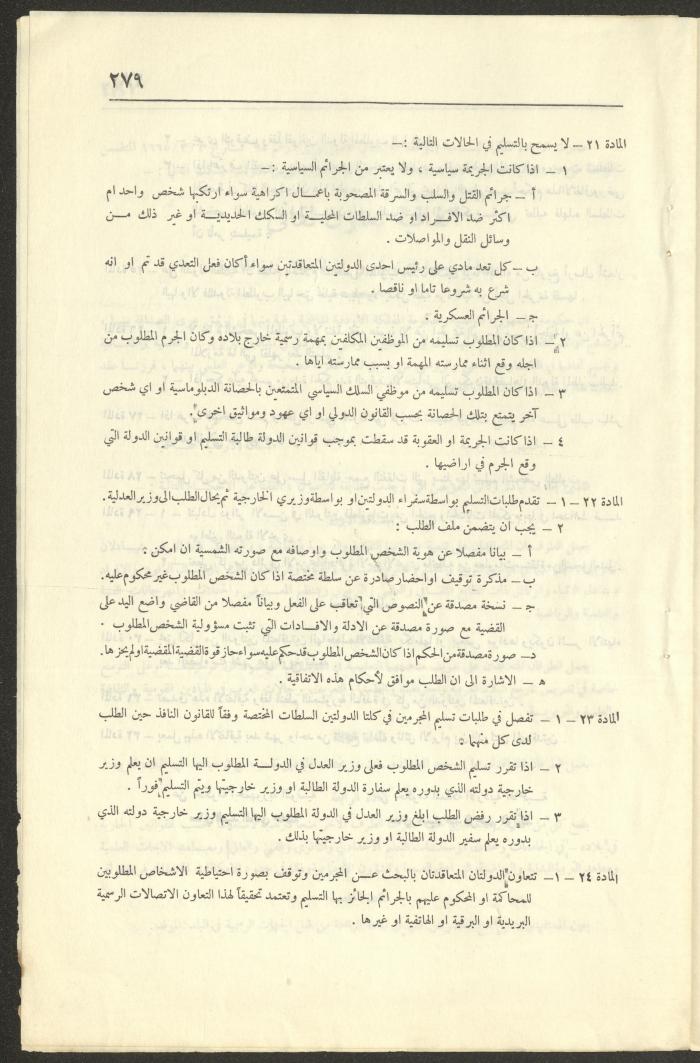 ٢٧٩
المادة ٢١ — لا يسمح بالتسليم في الحالات التالية :—
١ — اذا كانت الجريمة سياسية ، ولا يعتبر من الجرائم السياسية :—
أ — جرائم القتل والسلب والسرقة المصحوبة باعمال اكراهية سواء ارتكبها شخص واحد ام
اكثر ضد الافراد او ضد السلطات المحلية او السكك الحديدية او غير ذلك من
وسائل النقل والمواصلات .
ب — كل تعد مادي على رئيس احدى الدولتين المتعاقدتين سواء أكان فعل التعدي قد تم او انه
شرع به شروعا تاما او ناقصا .
ج — الجرائم العسكرية .
٢ — اذا كان المطلوب تسليمه من الموظفين المكلفين بمهمة رسمية خارج بلاده وكان الجرم المطلوب من
اجله وقع اثناء ممارسته المهمة او بسبب ممارسته اياها .
٣ — اذا كان المطلوب تسليمه من موظفي السلك السياسي المتمتعين بالحصانة الدبلوماسية او اي شخص
آخر يتمتع بتلك الحصانة بحسب القانون الدولي او اي عهود ومواثيق اخرى .
٤ — اذا كانت الجريمة او العقوبة قد سقطت بموجب قوانين الدولة طالبة التسليم او قوانين الدولة التي
وقع الجرم في اراضيها .
المادة ٢٢ — ١ — تقدم طلبات التسليم بواسطة سفراء الدولتين او بواسطة وزيري الخارجية ثم يحال الطلب الى وزير العدلية .
٢ — يجب ان يتضمن ملف الطلب :
أ — بيانا مفصلا عن هوية الشخص المطلوب واوصافه مع صورته الشمسية ان امكن .
ب — مذكرة توقيف او احضار صادرة عن سلطة مختصة اذا كان الشخص المطلوب غير محكوم عليه .
ج — نسخة مصدقة عن النصوص التي تعاقب على الفعل وبياناً مفصلا من القاضي واضع اليد على
القضية مع صورة مصدقة عن الادلة والافادات التي تثبت مسؤولية الشخص المطلوب .
د — صورة مصدقة من الحكم اذا كان الشخص المطلوب قد حكم عليه سواء حاز قوة القضية المقضية او لم يحزها .
ه — الاشارة الى ان الطلب موافق لأحكام هذه الاتفاقية .
المادة ٢٣ — ١ — تفصل في طلبات تسليم المجرمين في كلتا الدولتين السلطات المختصة وفقاً للقانون النافذ حين الطلب
لدى كل منهما .
٢ — اذا تقرر تسليم الشخص المطلوب فعلى وزير العدل في الدولة المطلوب اليها التسليم ان يعلم وزير
خارجية دولته الذي بدوره يعلم سفارة الدولة الطالبة او وزير خارجيتها ويتم التسليم فوراً .
٣ — اذا تقرر رفض الطلب ابلغ وزير العدل في الدولة المطلوب اليها التسليم وزير خارجية دولته الذي
بدوره يعلم سفير الدولة الطالبة او وزير خارجيتها بذلك .
المادة ٢٤ — ١ — تتعاون الدولتان المتعاقدتان بالبحث عن المجرمين وتوقف بصورة احتياطية الاشخاص المطلوبين
للمحاكمة او المحكوم عليهم بالجرائم الجائز بها التسليم وتعتمد تحقيقاً لهذا التعاون الاتصالات الرسمية
البريدية او البرقية او الهاتفية او غيرها .